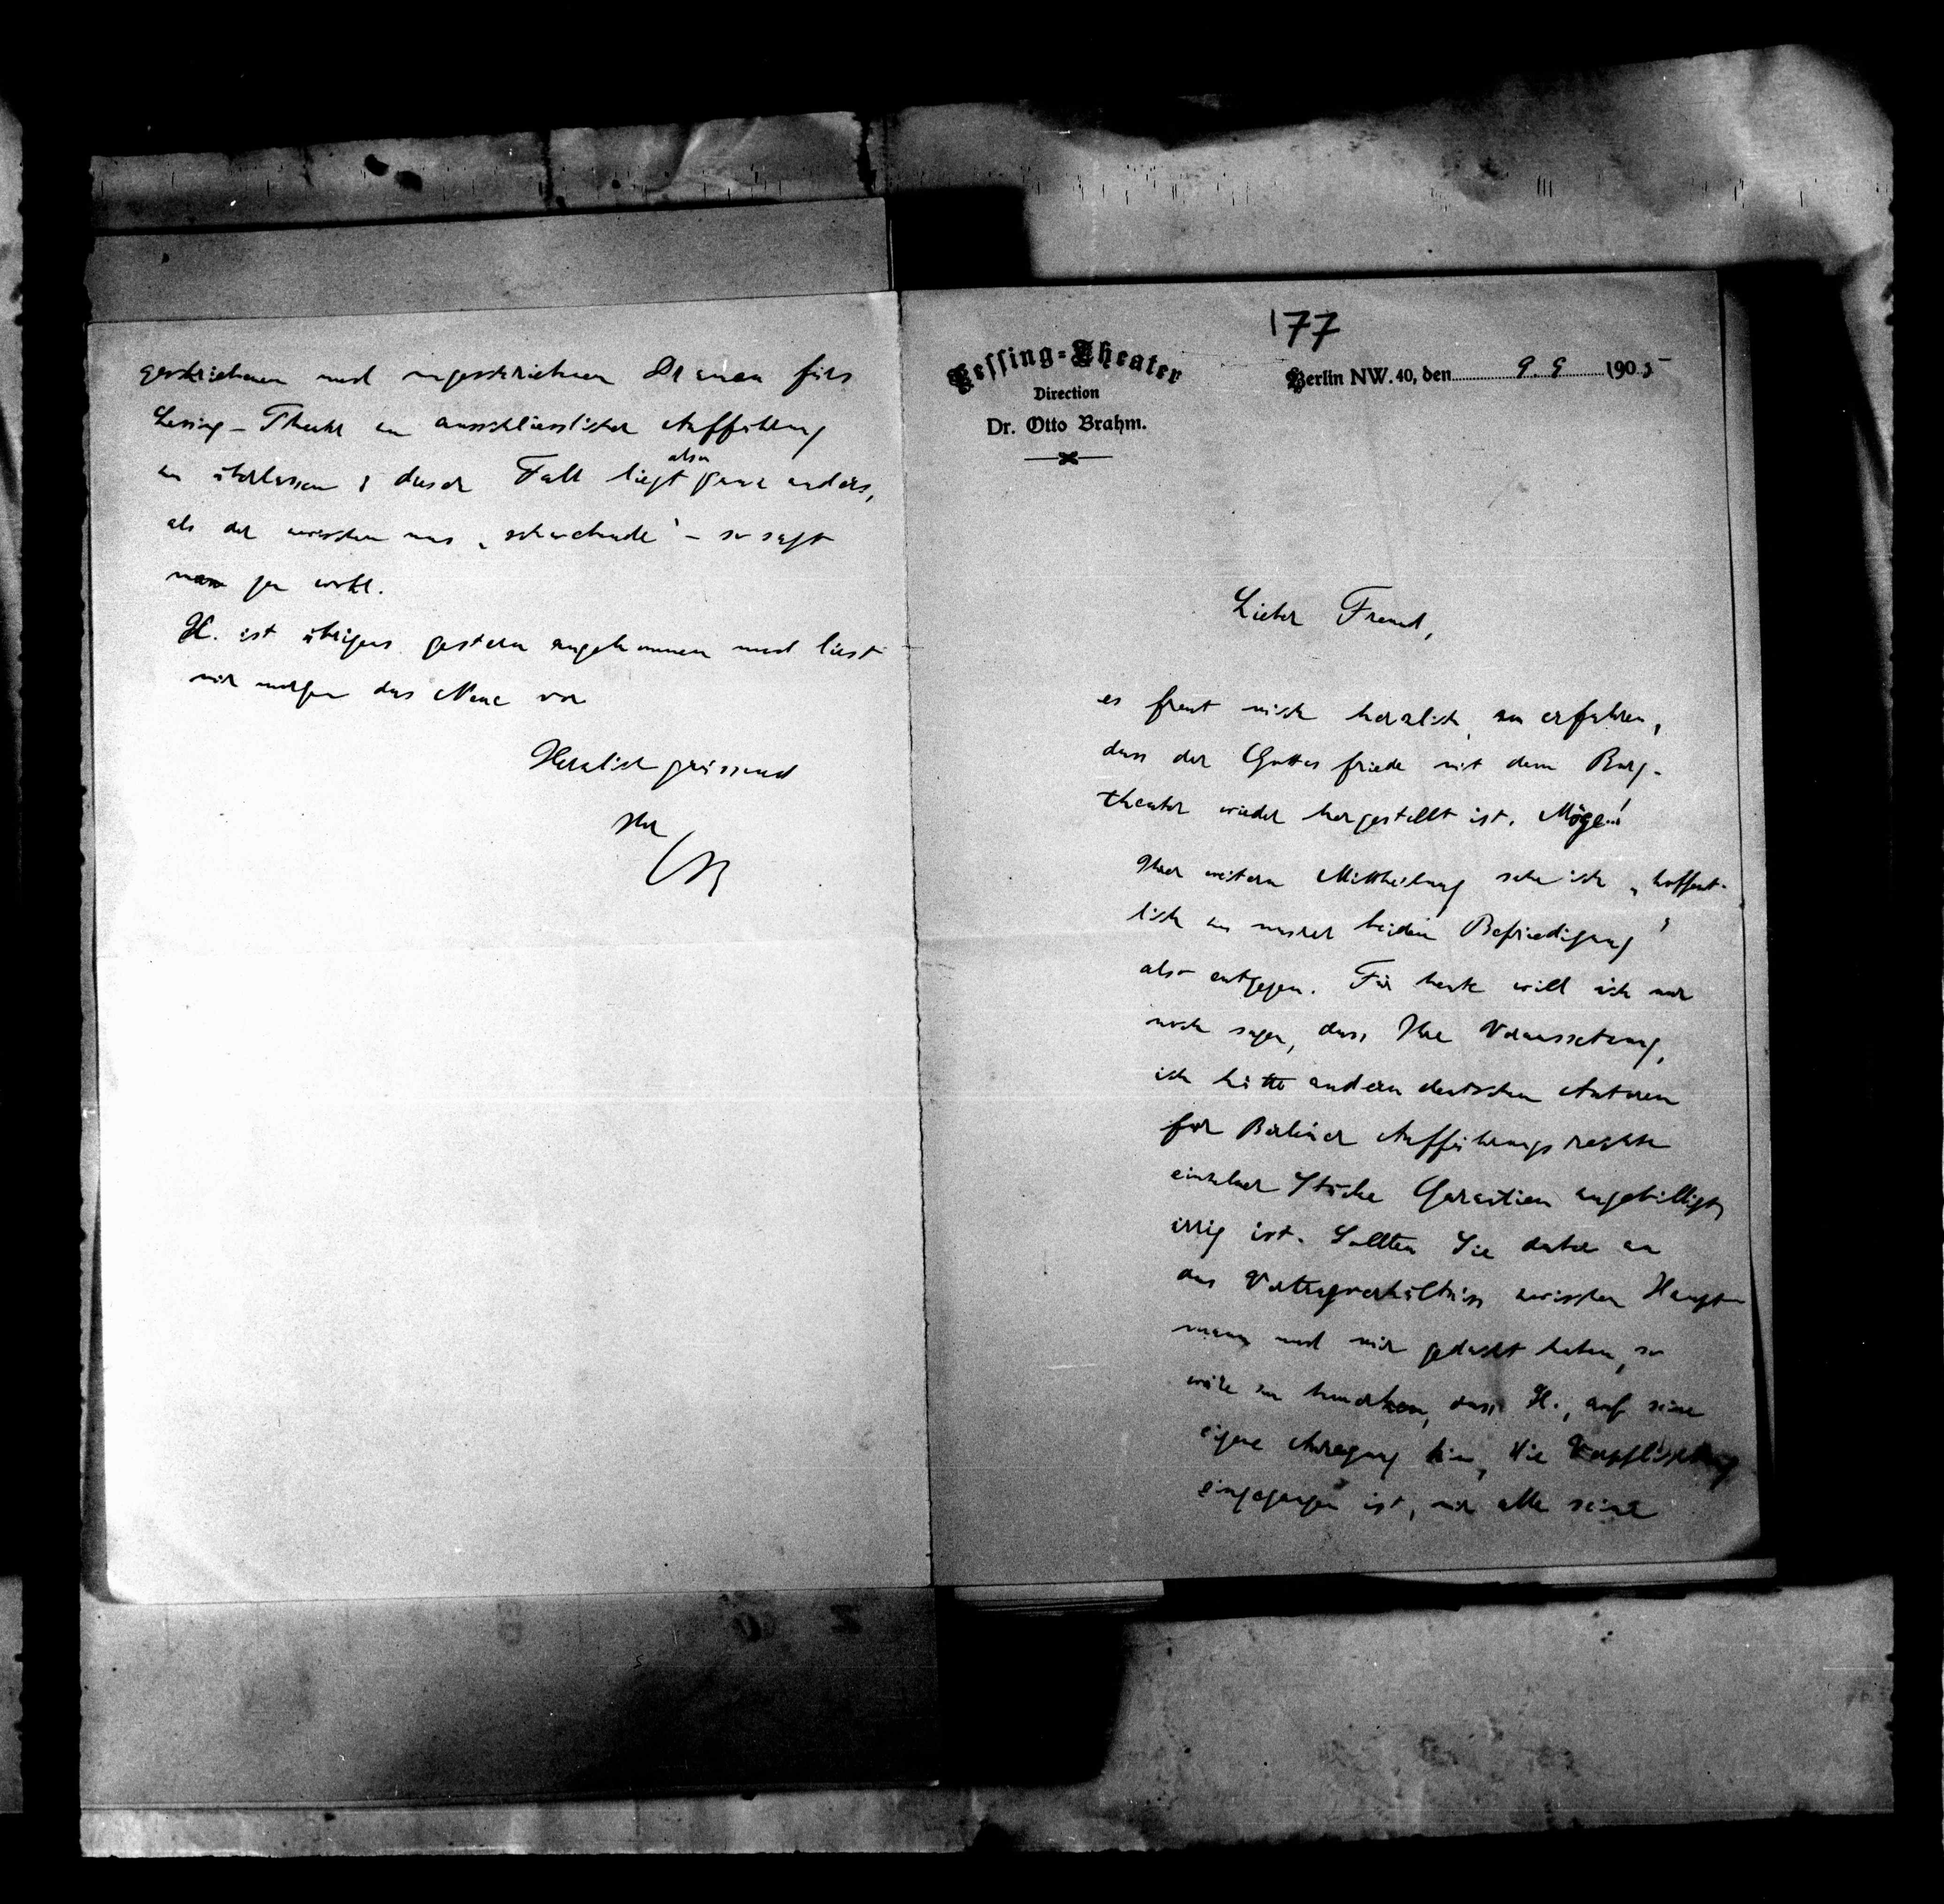 177
Lessing-Theater
Direction
Dr. Otto Brahm.
Berlin NW. 40, den 9. 9. 1905
Lieber Freund,
es freut mich herzlich, zu erfahren,
dass der Gottesfriede mit dem Burg-
theater wieder hergestellt ist. Möge..!
Ihrer weitern Mittheilung sehe ich „hoffent-
lich zu unsrer beiden Befriedigung“
also entgegen. Für heute will ich nur
noch sagen, dass Ihre Voraussetzung,
ich hätte andern deutschen Autoren
für Berliner Aufführungsrechte
einzelner Stücke Garantien zugebilligt,
irrig ist. Sollten Sie dabei an
das Vertragsverhältniss zwischen Haupt-
mann und mir gedacht haben, so
wäre zu bemerken, dass H., auf seine
eigene Anregung hin, die Verpflichtung
eingegangen ist, mir alle seine
geschriebenen und ungeschriebenen Dramen fürs
Lessing-Theater zu ausschliesslicher Aufführung
zu überlassen; dieser Fall liegt also ganz anders,
als der zwischen uns „schwebende“ – so sagt
man ja wohl.
H. ist übrigens gestern angekommen und liest
mir morgen das Neue vor
Herzlich grüssend
Ihr
OB